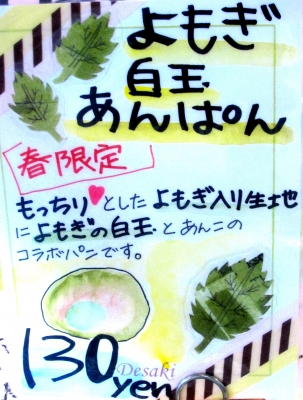 よもぎ
白玉
あんぱん
春限定
もっちり♥とした よもぎ入り生地
に よもぎの白玉 と あんこの
コラボパンです。
130yen
Desaki